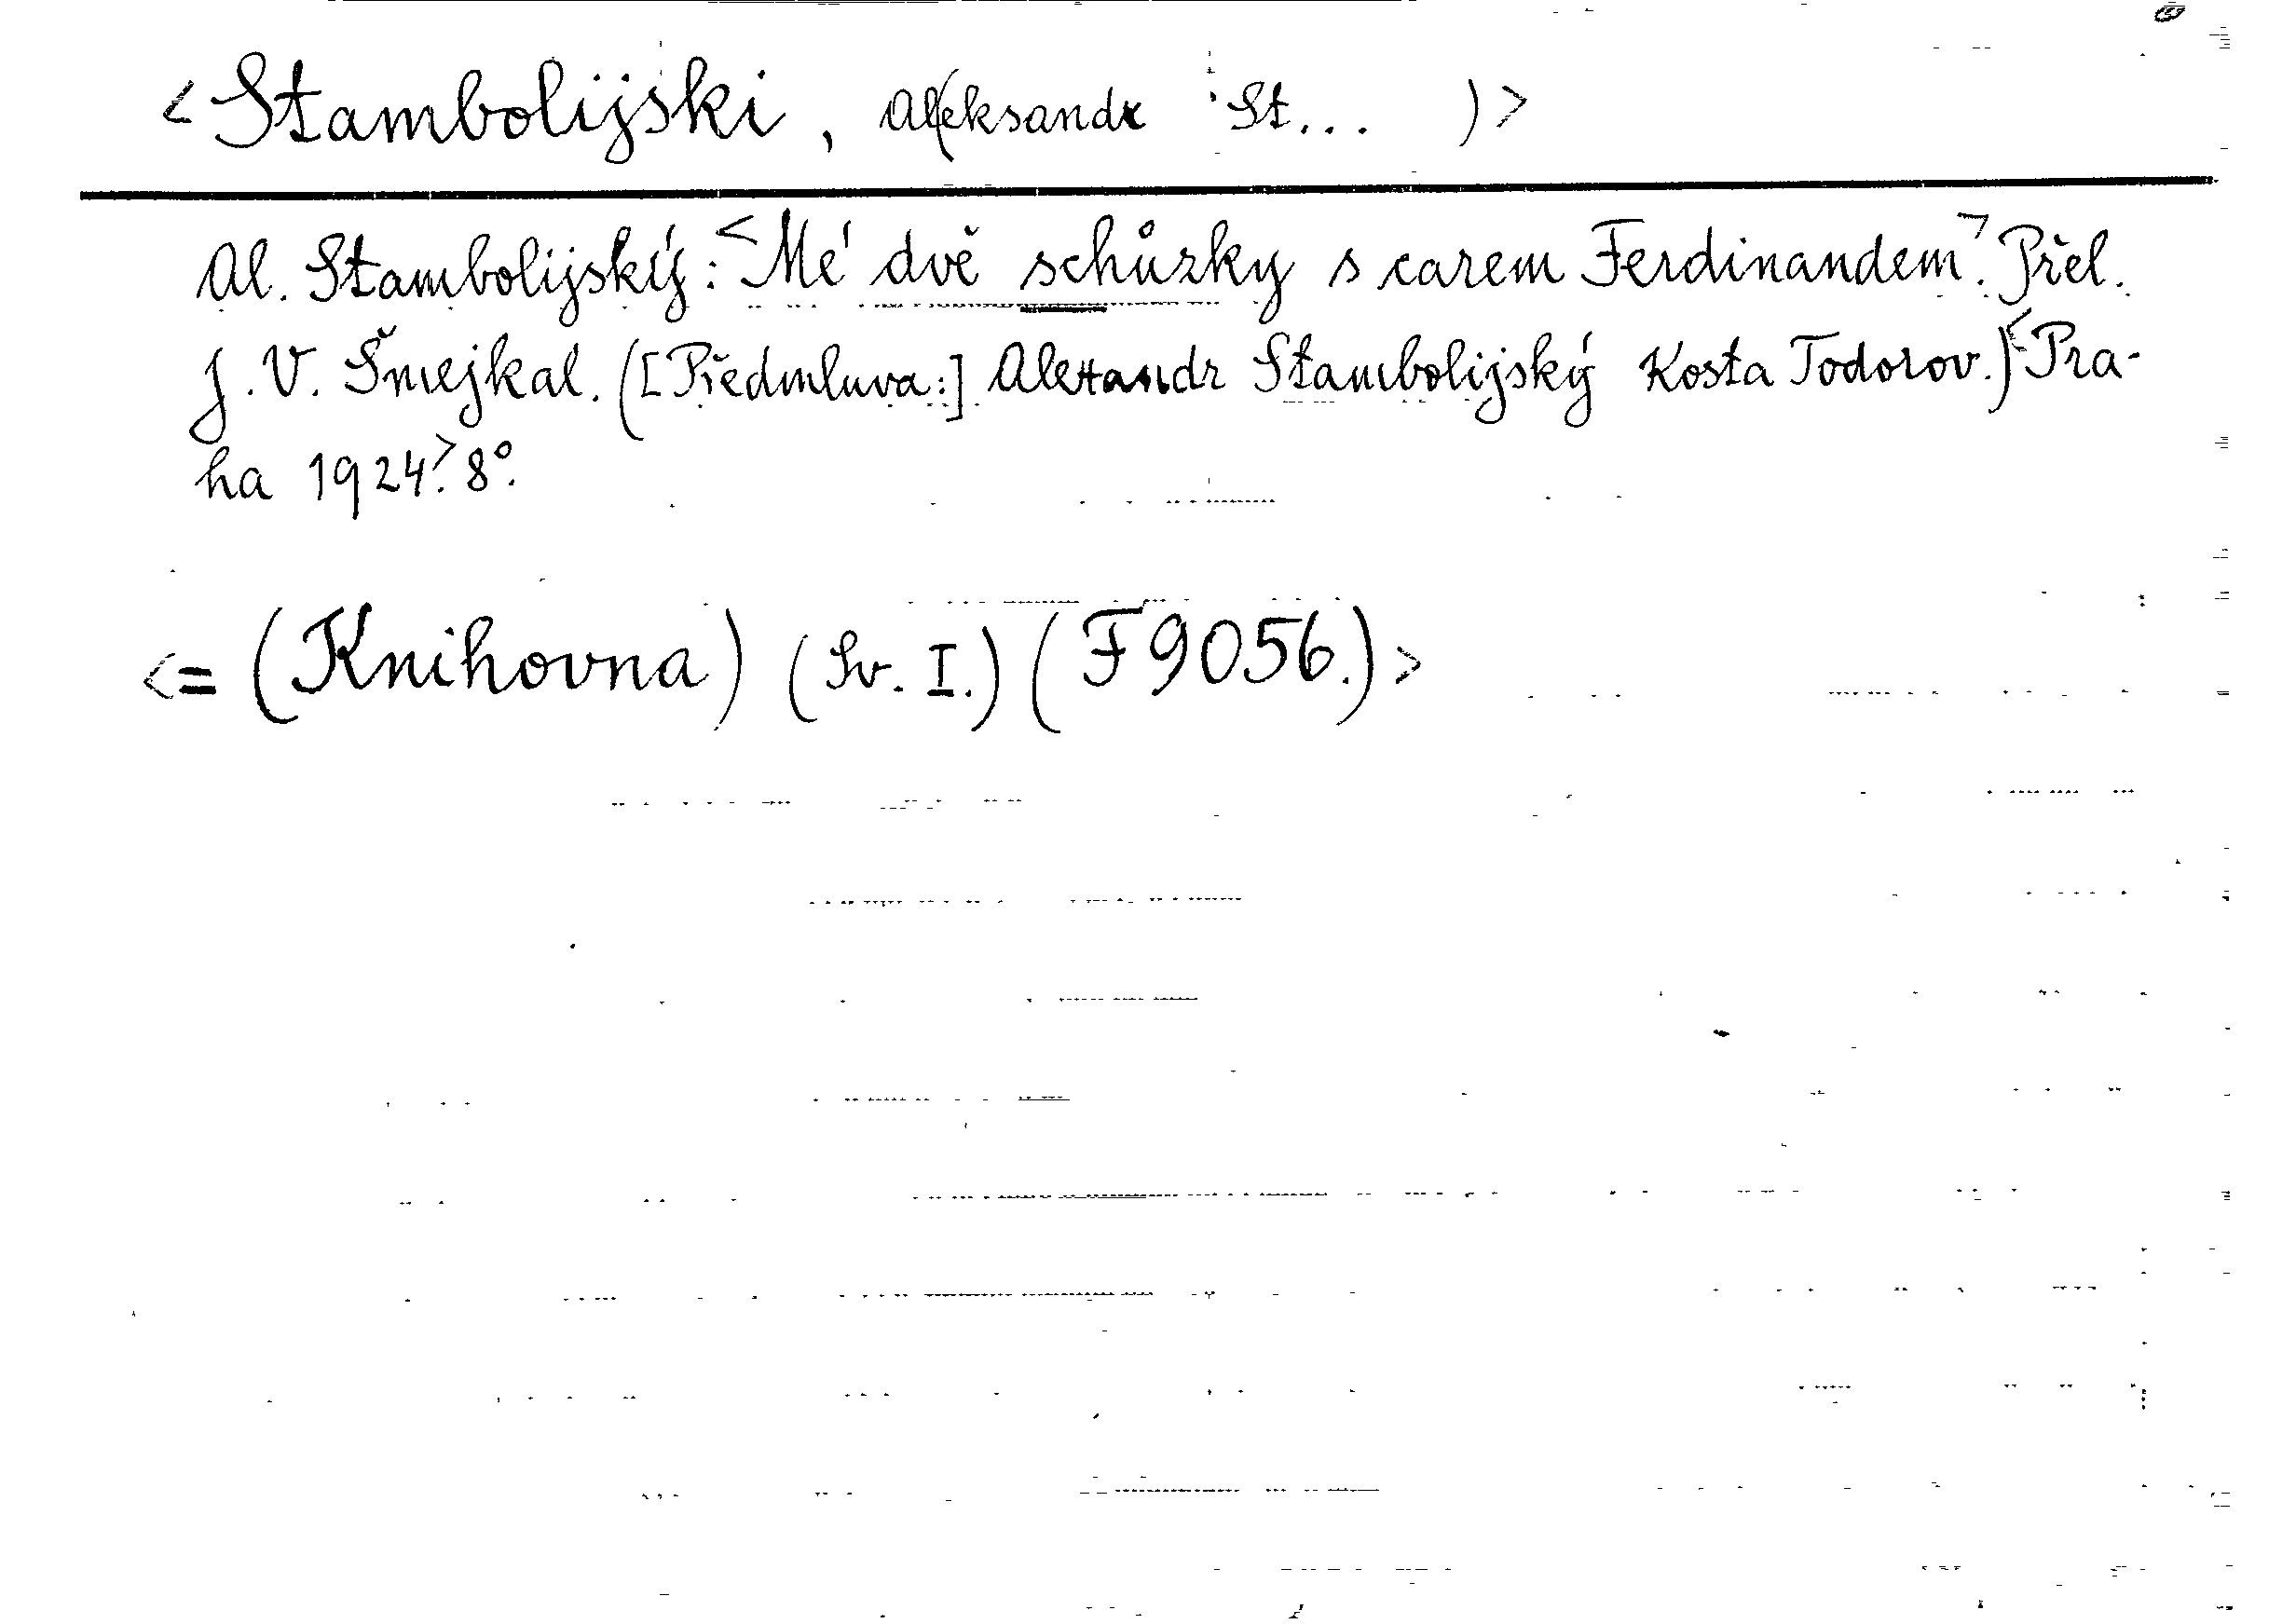 <Stambolijski, Aleksandr St... )>
Al. Stambolijský: <Mé dvě schůzky s carem Ferdinandem>. Přel.
J. V. Šmejkal. ([Předmluva:] Alexandr Stambolijský Kosta Todorov.) <Pra-
ha 1924>. 8°.
<= (Knihovna) (Sv. I.) (F 9056.)>